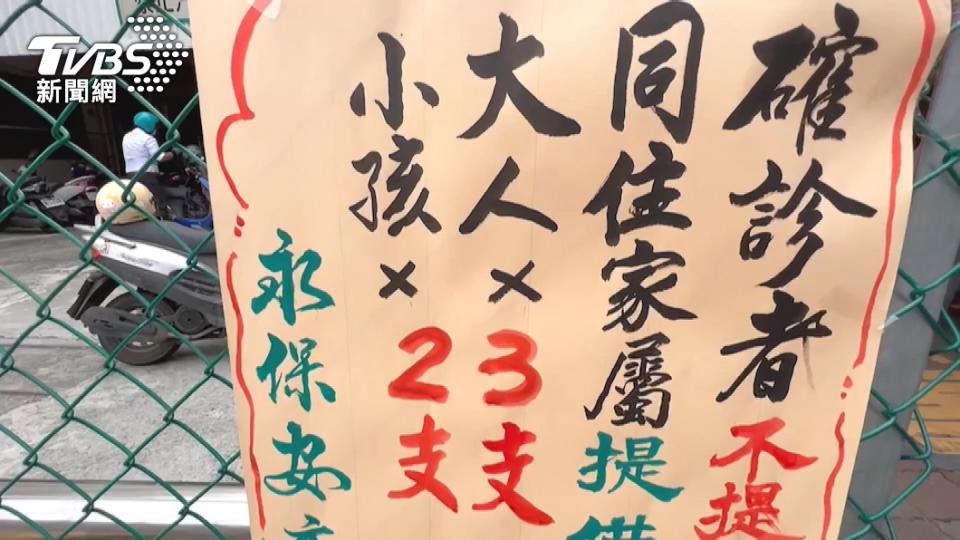 TVBS
新聞網
確診者不提
同住家屬提供
大人×3支
小孩×2支
永保安